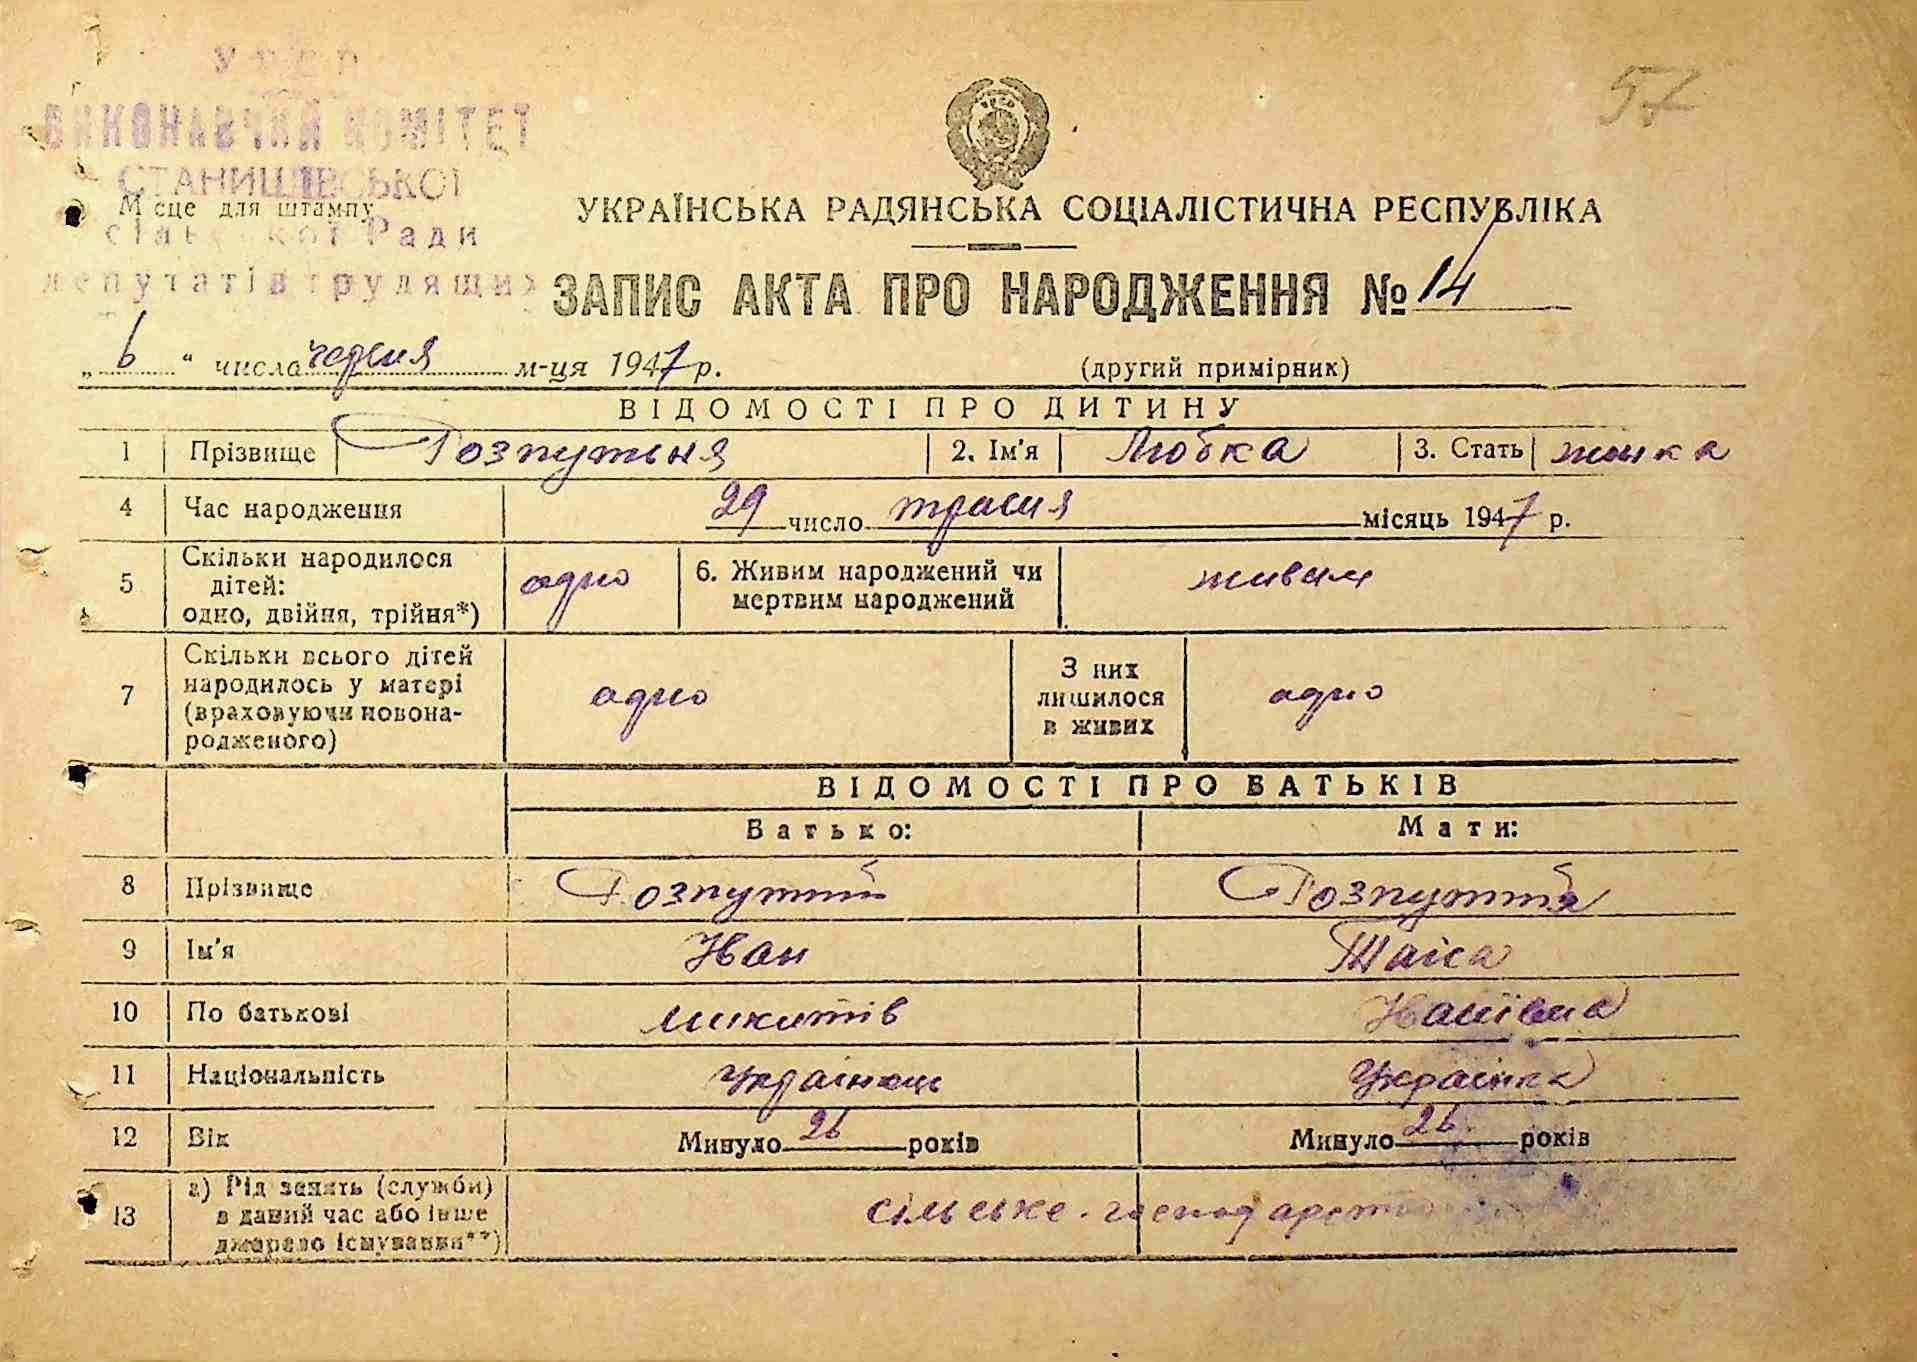 УРСР
ВИКОНАВЧИЙ КОМІТЕТ
СТАНИШІВСЬКОЇ
Місце для штампу
сільської Ради
депутатів трудящих
57
УКРАЇНСЬКА РАДЯНСЬКА СОЦІАЛІСТИЧНА РЕСПУБЛІКА
ЗАПИС АКТА ПРО НАРОДЖЕННЯ № 14
„ 6 “ числа червня м-ця 1947 р. (другий примірник)
ВІДОМОСТІ ПРО ДИТИНУ
1 Прізвище Розпутьня 2. Ім'я Любка 3. Стать жинка
4 Час народження 29 число травня місяць 1947 р.
5 Скільки народилося дітей: одно, двійня, трійня*) адно 6. Живим народжений чи мертвим народжений живим
7 Скільки всього дітей народилось у матері (враховуючи новонародженого) адно З них лишилося в живих адно
ВІДОМОСТІ ПРО БАТЬКІВ
Батько: Мати:
8 Прізвище Розпуттій Розпуття
9 Ім'я Иван Таіса
10 По батькові Микитів
11 Національність Українец Українка
12 Вік Минуло 26 років Минуло 26 років
13 а) Рід занять (служби) в даний час або інше джерело існування**) сільське-господарство